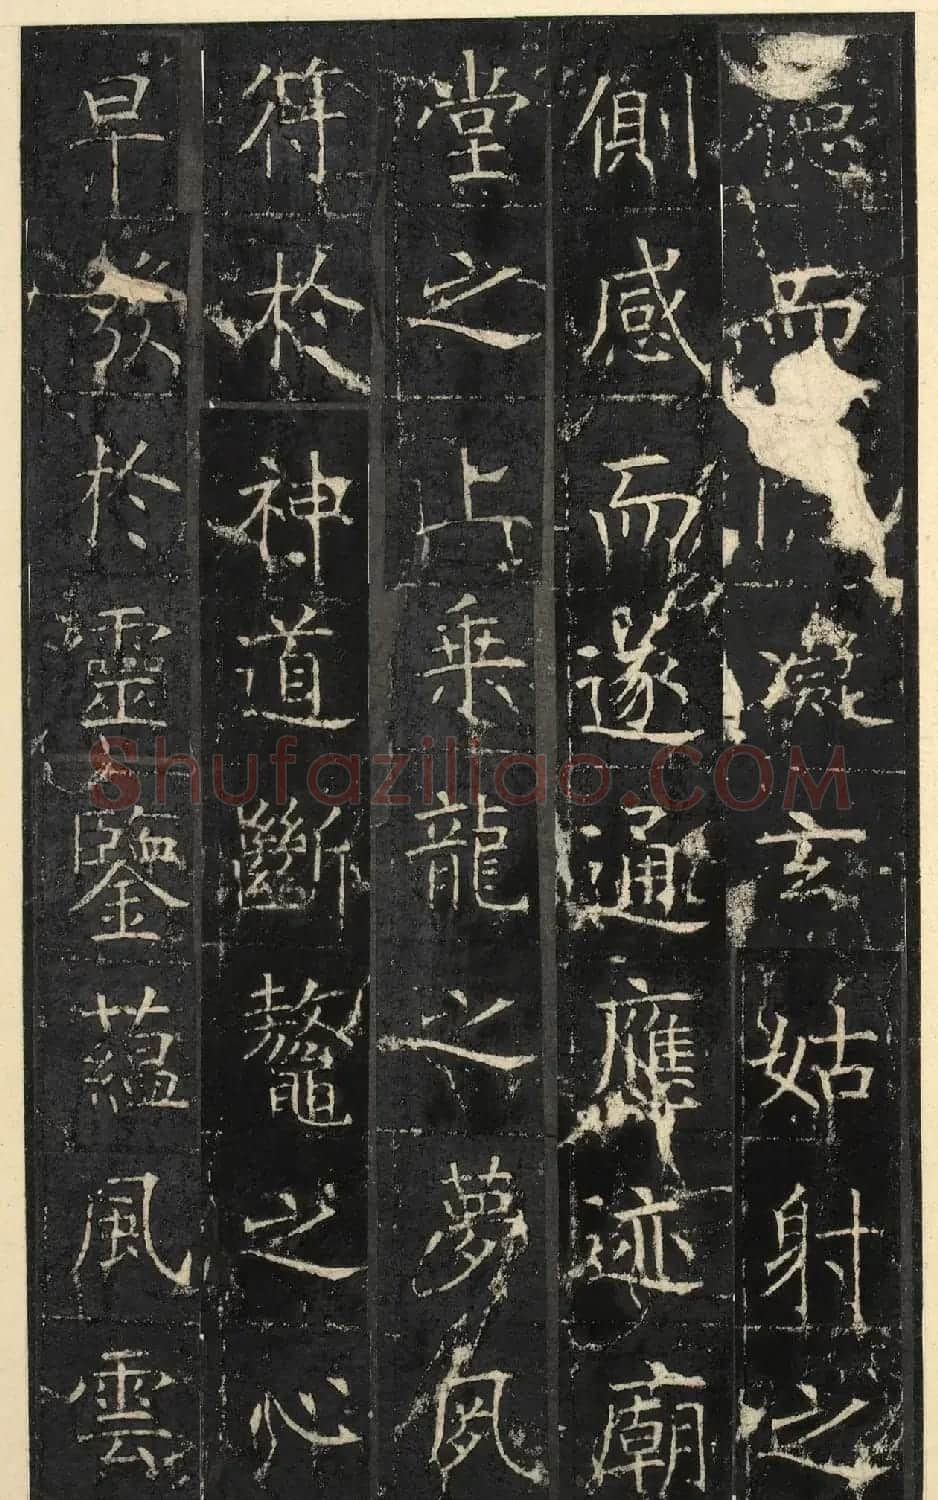 而凝玄姑射之
側感而遂通應迹廟
堂之上乘龍之夢夙
符於神道斷鼇之心
早茲於靈鑒蘊風雲
Shufaziliao.COM